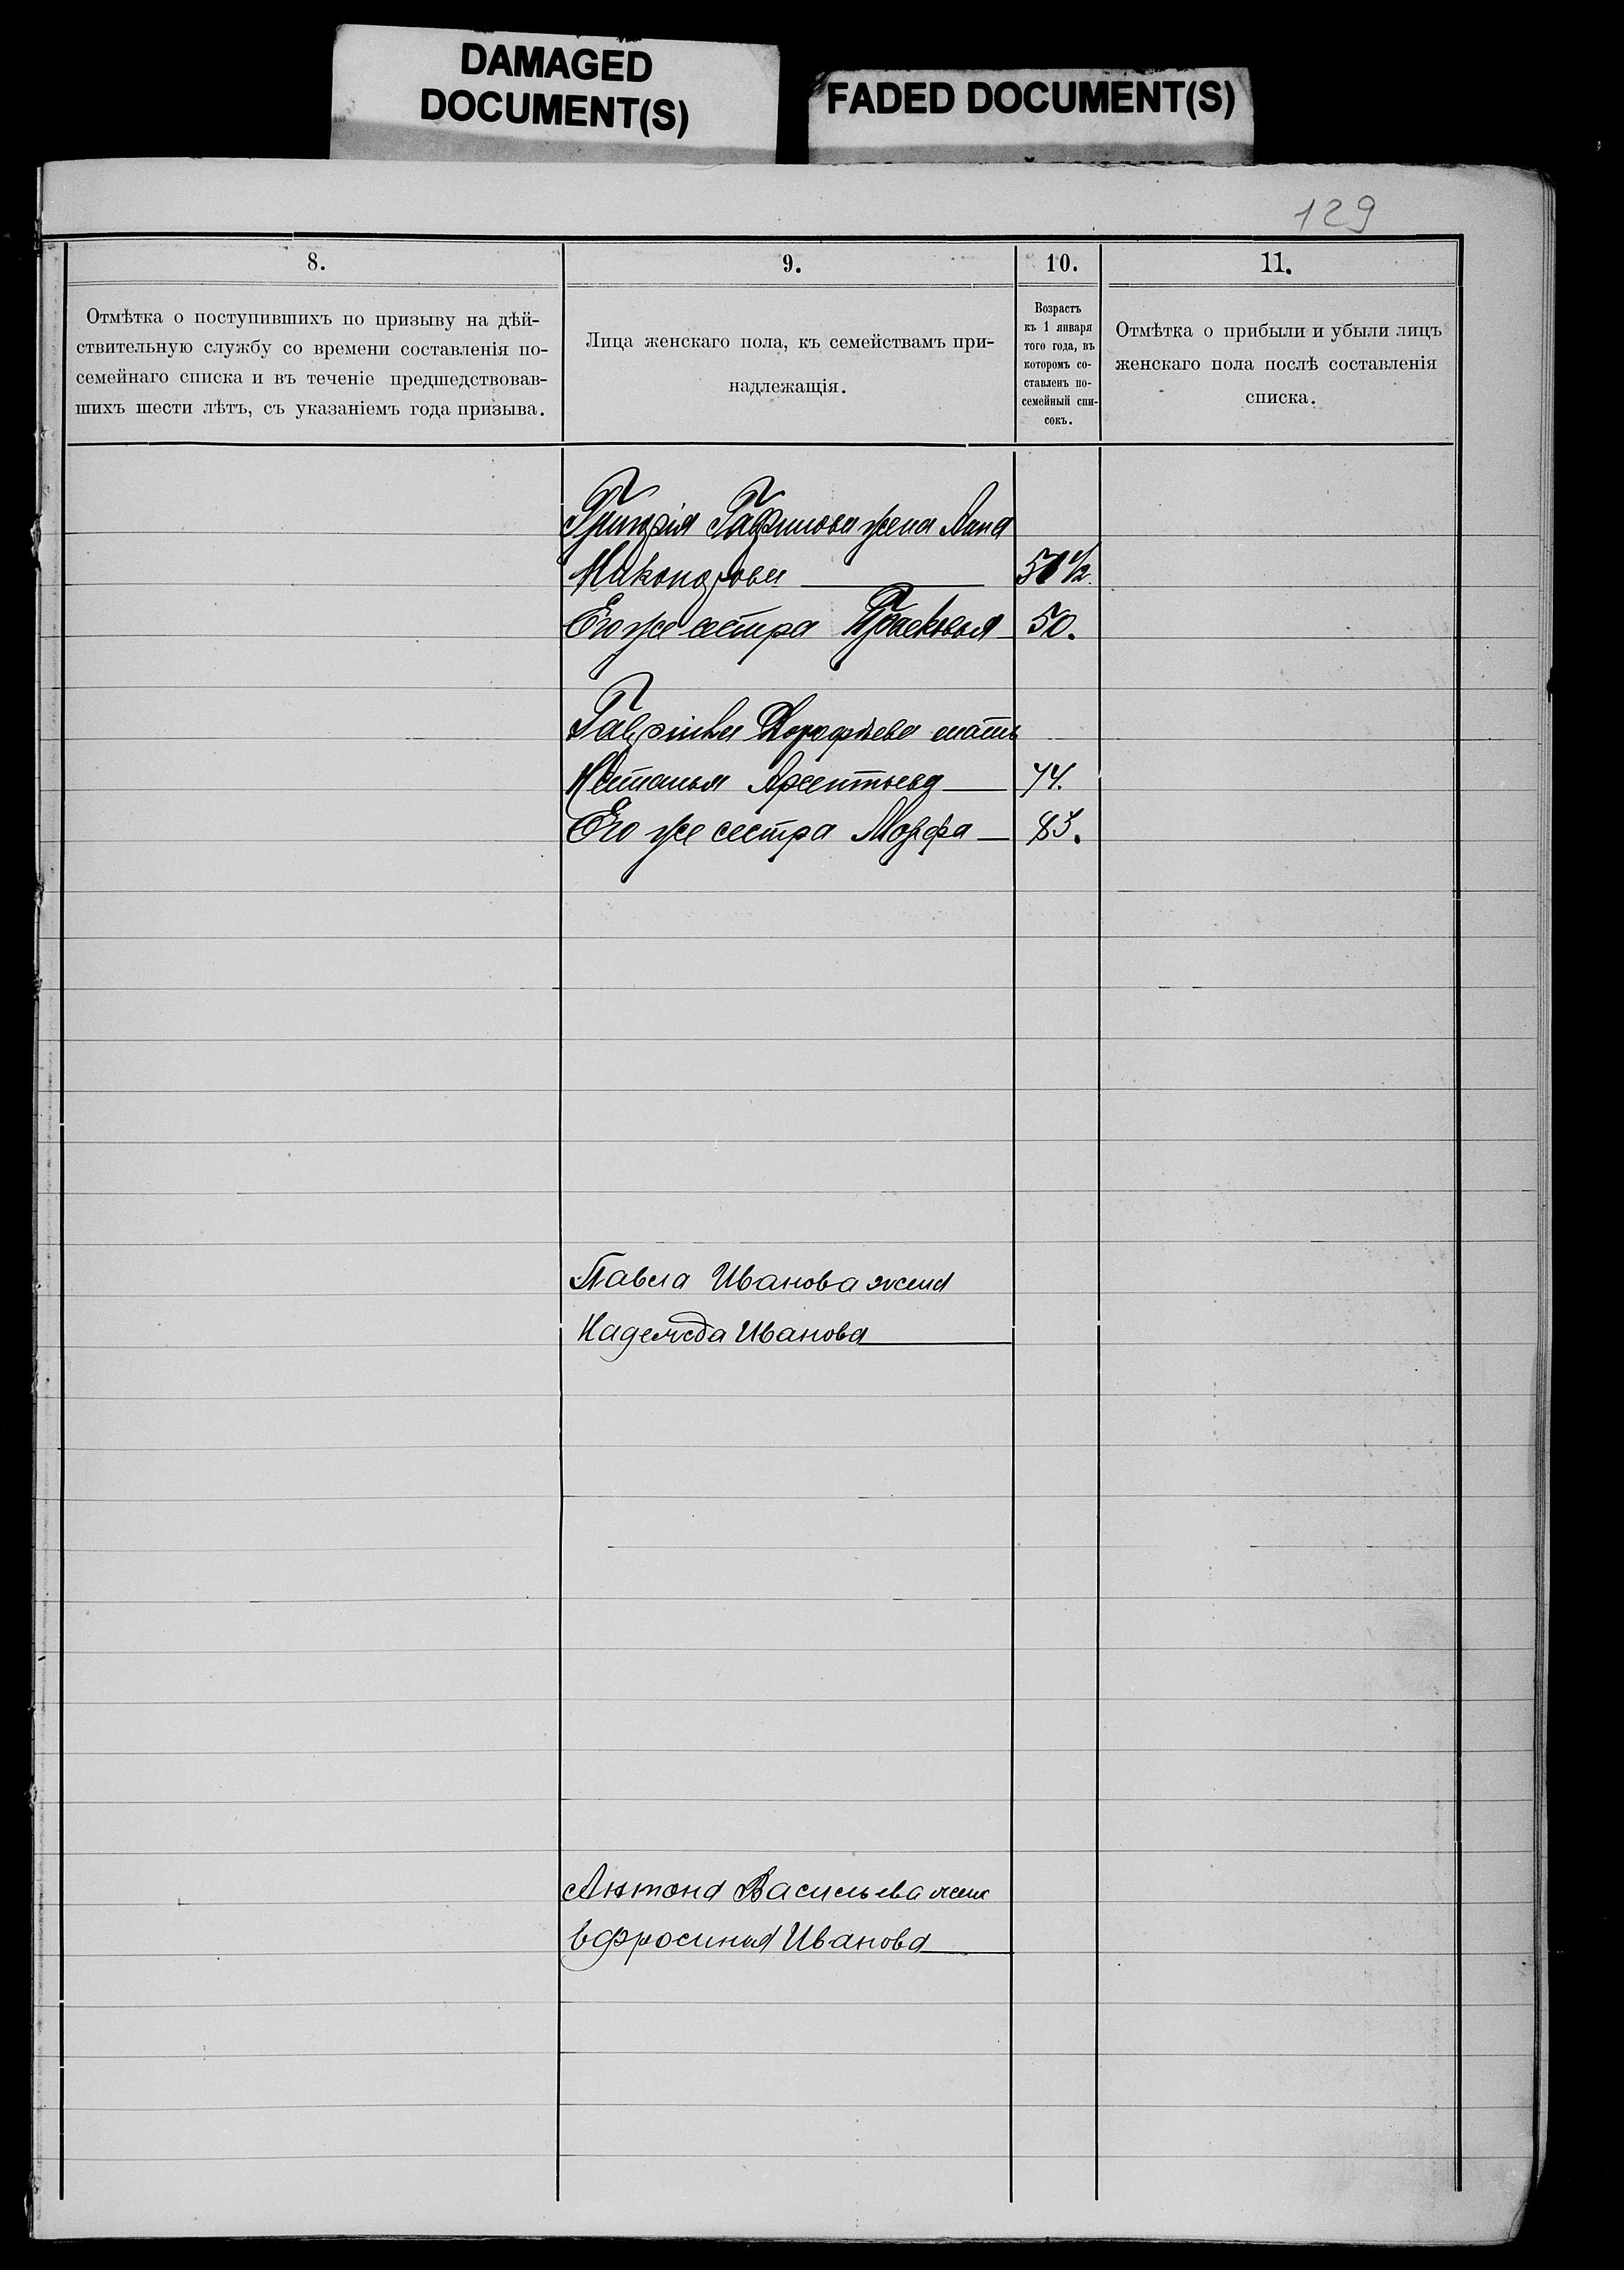 DAMAGED
DOCUMENT(S)
FADED DOCUMENT(S)
129
8.
Отмѣтка о поступившихъ по призыву на дѣй-
ствительную службу со времени составленія по-
семейнаго списка и въ теченіе предшедствовав-
шихъ шести лѣтъ, съ указаніемъ года призыва.
9.
Лица женскаго пола, къ семействамъ при-
надлежащія.
10.
Возрастъ
къ 1 января
того года, въ
которомъ со-
ставленъ по-
семейный спи-
сокъ.
11.
Отмѣтка о прибыли и убыли лицъ
женскаго пола послѣ составленія
списка.
Григорія Гаврилова жена Анна
Никондрова 51 1/2.
Его же сестра Прасковья 50.
Гаврила Дорофѣева мать
Настасья Арсентьева 74.
Его же сестра Марфа
Павла Иванова жена
Надежда Иванова
Антона Васильева жена
Ефросинья Иванова